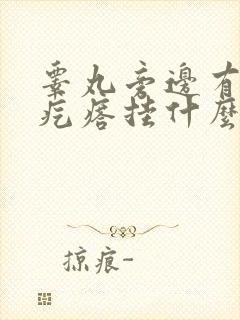 睾丸旁边有
疙瘩挂什麼
掠痕-